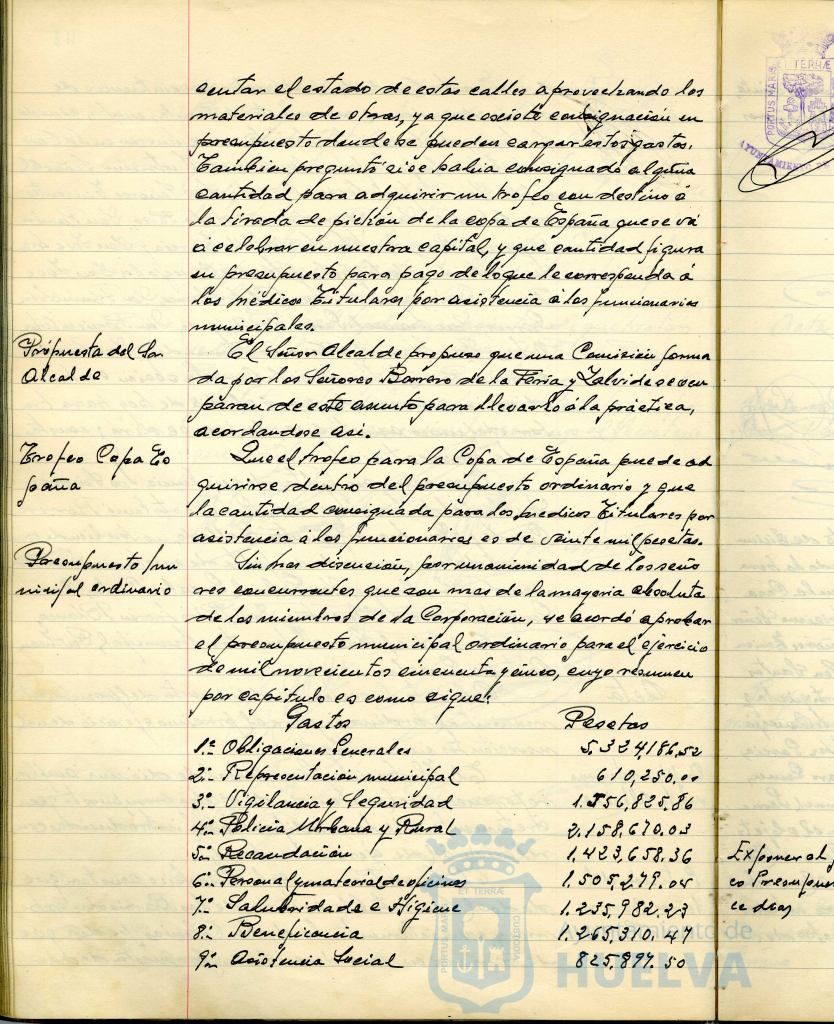 centar el estado de estas calles aprovechando los
materiales de otras, ya que existe consignación en
presupuesto donde se pueden cargar estos gastos.
Tambien preguntó si se habia consignado alguna
cantidad para adquirir un trofeo con destino á
la tirada de pichón de la copa de España que se vá
á celebrar en nuestra capital, y que cantidad figura
en presupuesto para pago de lo que le corresponda á
los médicos Titulares por asistencia á los funcionarios
municipales.
Propuesta del Sr
Alcalde
El Señor Alcalde propuso que una Comisión forma
da por los Señores Borrero de la Feria y Zalvide se ocu
paran de este asunto para llevarlo á la práctica,
acordandose asi.
Trofeo Copa Es
paña
Que el trofeo para la Copa de España puede ad
quirirse dentro del presupuesto ordinario y que
la cantidad consignada para los medicos Titulares por
asistencia á los funcionarios es de veinte mil pesetas.
Presupuesto mu
nicipal ordinario
Sin mas discusión, por unanimidad de los seño
res concurrentes que son mas de la mayoria absoluta
de los miembros de la Corporación, se acordó aprobar
el presupuesto municipal ordinario para el ejercicio
de mil novecientos cincuenta y cinco, cuyo resumen
por capítulo es como sigue:
Gastos Pesetas
1.º Obligaciones Generales 5.324,186,52
2.º Representación municipal 610,250.00
3.º Vigilancia y Seguridad 1.556,825.86
4.º Policia Urbana y Rural 2.158,670.03
5.º Recaudación 1.423,658.36
6.º Personal y material de oficinas 1.505,279.04
7.º Salubridad e Higiene 1.235,982.23
8.º Beneficencia 1.265,310.47
9.º Asistencia Social 825,897.50
Exponer al p
co Presupue
ce dias
PORTUS MARIS
ET TERRÆ
AYUNTAMIENTO DE
PORTUS MARIS ET TERRÆ CUSTODIA
Ayuntamiento de
HUELVA